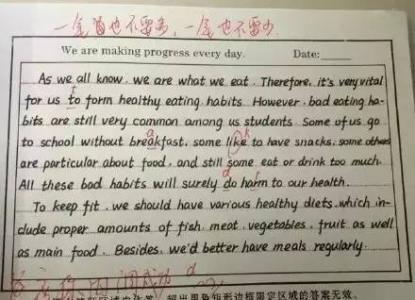 一笔画也不要多，一笔也不要少
We are making progress every day. Date:
As we all know, we are what we eat. Therefore, it's very vital
for us to form healthy eating habits. However, bad eating ha-
bits are still very common among us students. Some of us go
to school without breakfast, some like to have snacks, some others
are particular about food, and still some eat or drink too much.
All these bad habits will surely do harm to our health.
To keep fit, we should have various healthy diets, which in-
clude proper amounts of fish, meat, vegetables, fruit as well
as main food. Besides, we'd better have meals regularly.
超出黑色矩形边框限定区域的答案无效。